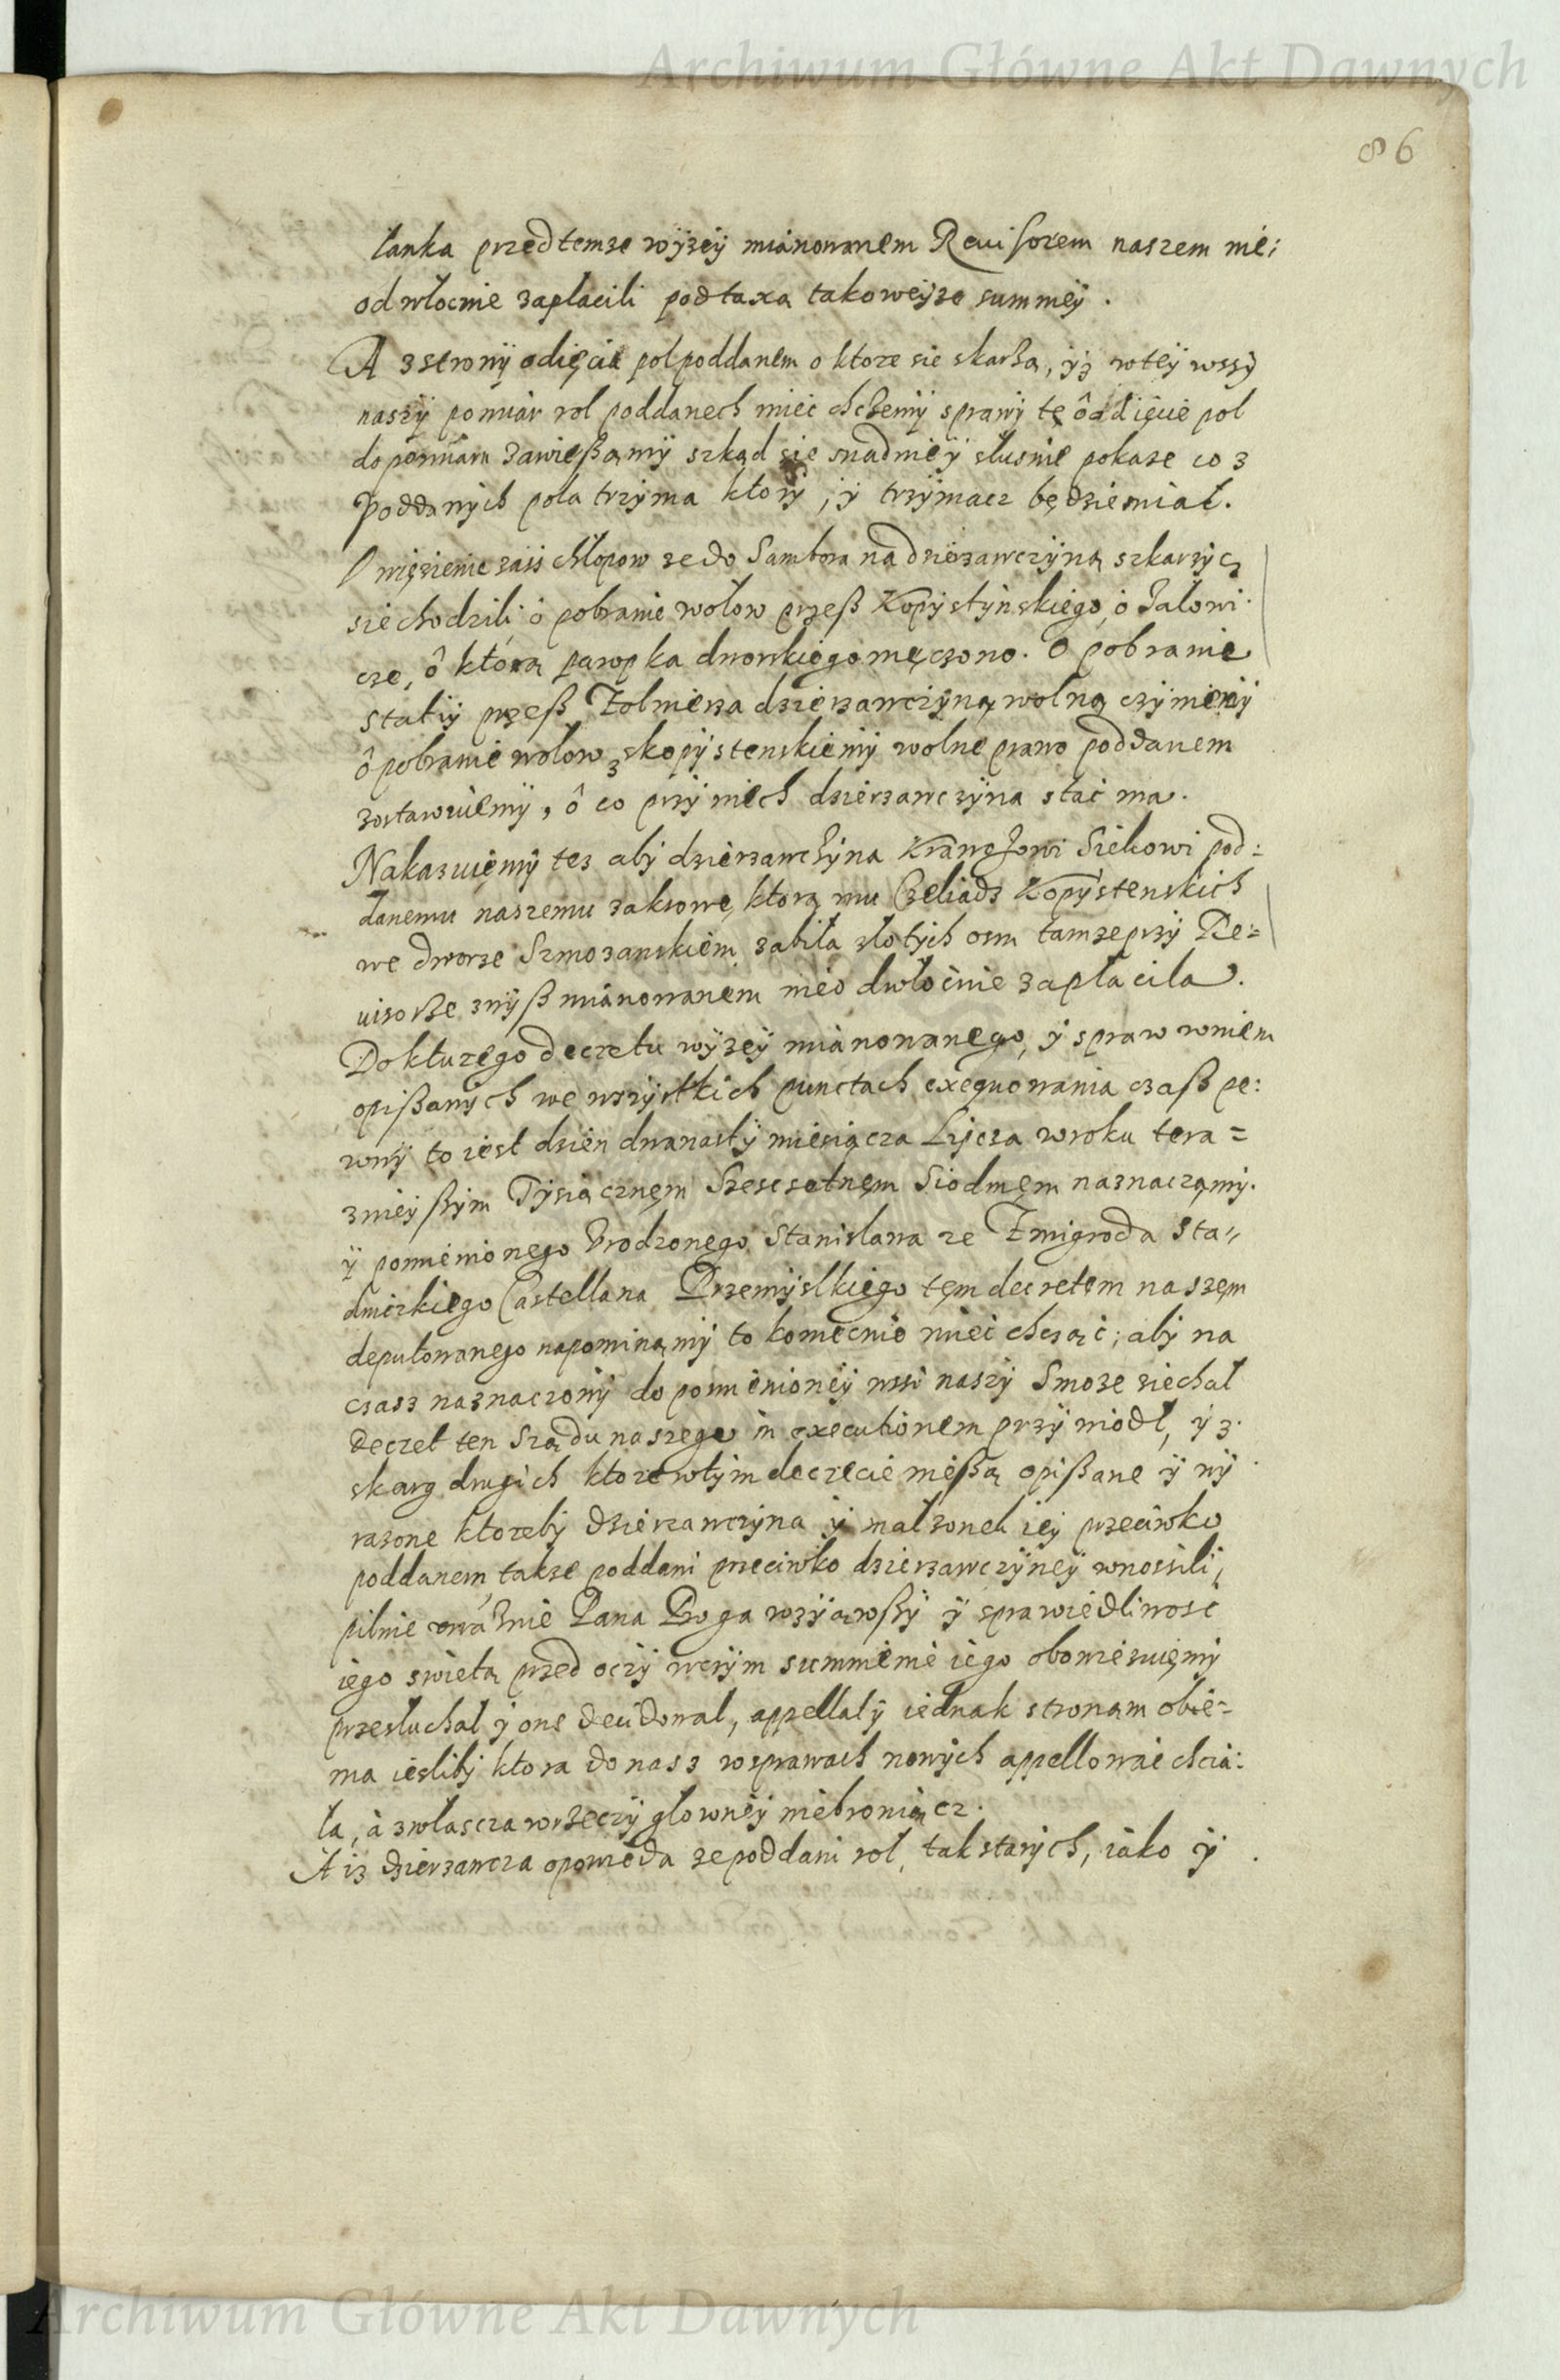 Archiwum Główne Akt Dawnych
86
łanka przedtemze wÿzeÿ mianowanem Reuisorem naszem nie:
odwłocnie zaplacili pod taxa takoweÿze summeÿ.
A zstronÿ odięcia pol poddanem o ktore sie skarża, ÿz wteÿ wssÿ
naszÿ pomiar rol poddanech mieć chcżemÿ sprawÿ tę ôddięcie pol
do pomiaru zawießamÿ szkąd sie snadnieÿ slusnie pokaze co z
Poddanÿch pola trzÿma ktorÿ, ÿ trzÿmacz będzie miał.
O więzienie zaiss chłopow ze do Sambora na dzierzawczÿną szkarzÿcz
sie chodzili o pobranie wołow przeß Kopÿstÿnskiego, o Jałowi:
cze, ô którą paropka dworskiego męczono. O pobranie
statij przeß Żołnierza dzierzawczÿną wolną czÿniemÿ
ô pobranie wołow z skopÿstenskiemÿ wolne prawo poddanem
zostawuiemÿ, ô co przÿ niech dzierzawczÿna stać ma.
Nakazuiemÿ tez abÿ dzierzawczÿna Krawczowi Siekowi pod=
danemu naszemu za krowę, ktorą mu Czeliadz Kopÿstenskich
we dworze Smozanskiem zabiła złotÿch osm tamze przÿ Re=
uisorże zwÿß mianowanem nieodwłocnie zapłaciła.
Do kturego decretu wÿzeÿ mianowanego, ÿ spraw wniem
opißanÿch we wszÿstkich punctach exequowania czaß pe:
wnÿ to iest dzien dwanastÿ miesiącza Lipcza wroku tera=
znieÿßÿm Tÿsiącznęm Szescsetnęm Siodmęm naznaczamÿ.
ÿ pomienionego Vrodzonego Stanislawa ze Żmigroda Sta=
dnickiego Castellana Przemÿslkiego tęm decretem naszęm
deputowanego napominamÿ to koniecnie mieć chcząć; abÿ na
czass naznaczonÿ do pomienioneÿ wssi naszÿ Smoze ziechał
decret ten Sządu naszego in executionem przÿwiodł, ÿ z
skarg drugich ktore wtÿm decrecie nießą opißane ÿ wÿ
razone ktorebÿ dzierzawczÿna ÿ małzonek ieÿ przeciwko
poddanem, takze poddani przeciwko dzierzawczÿneÿ wnossili,
pilnie uważnie Pana Boga wzÿąwßÿ ÿ sprawiedliwosc
iego swieta przed oczÿ wczÿm summienie iego obowiezuięmÿ
przesłuchał ÿ one decidował, appellatÿ iednak stronam obie=
ma ieslibÿ ktora do nass w sprawach nowÿch appellowaie chcia:
ła, à zwłascza w rzeczÿ głowneÿ niebroniącz.
A iz dzierzawcza opowieda ze poddani rol, tak starÿch, iako ÿ
Archiwum Główne Akt Dawnych